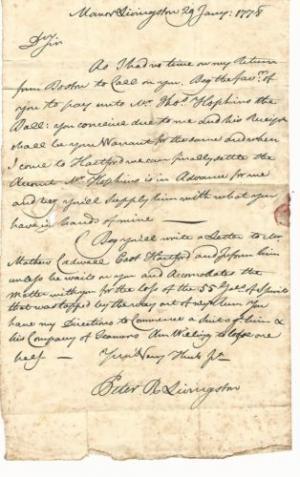 Manor Livingston 29 Jany: 1778
Dr Sir
As I had no time on my Return
from Boston to Call on you, Beg the favr. of
you to pay unto Mr. Thos. Hopkins the
Ball: you conceive due to me and his Receipt
shall be your Warrant for the same and when
I come to Hartford we can finally settle the
Accout Mr. Hopkins is in Advance for me
and beg you'll Supply him with what you
have in hands of mine —
Beg you'll write a Letter to Mr
Mathew Cadwell East Hartford and Inform him
unless he waits on you and Accomodates the
matter with you for the loss of the 55 Gals. of Spirits
that was stopped by the way out of my You
have my Directions to Commence a Suit agt. him &
his Company of Teamers Am Willing to lose one
half —
Yr Very Hule St
Peter R Livingston